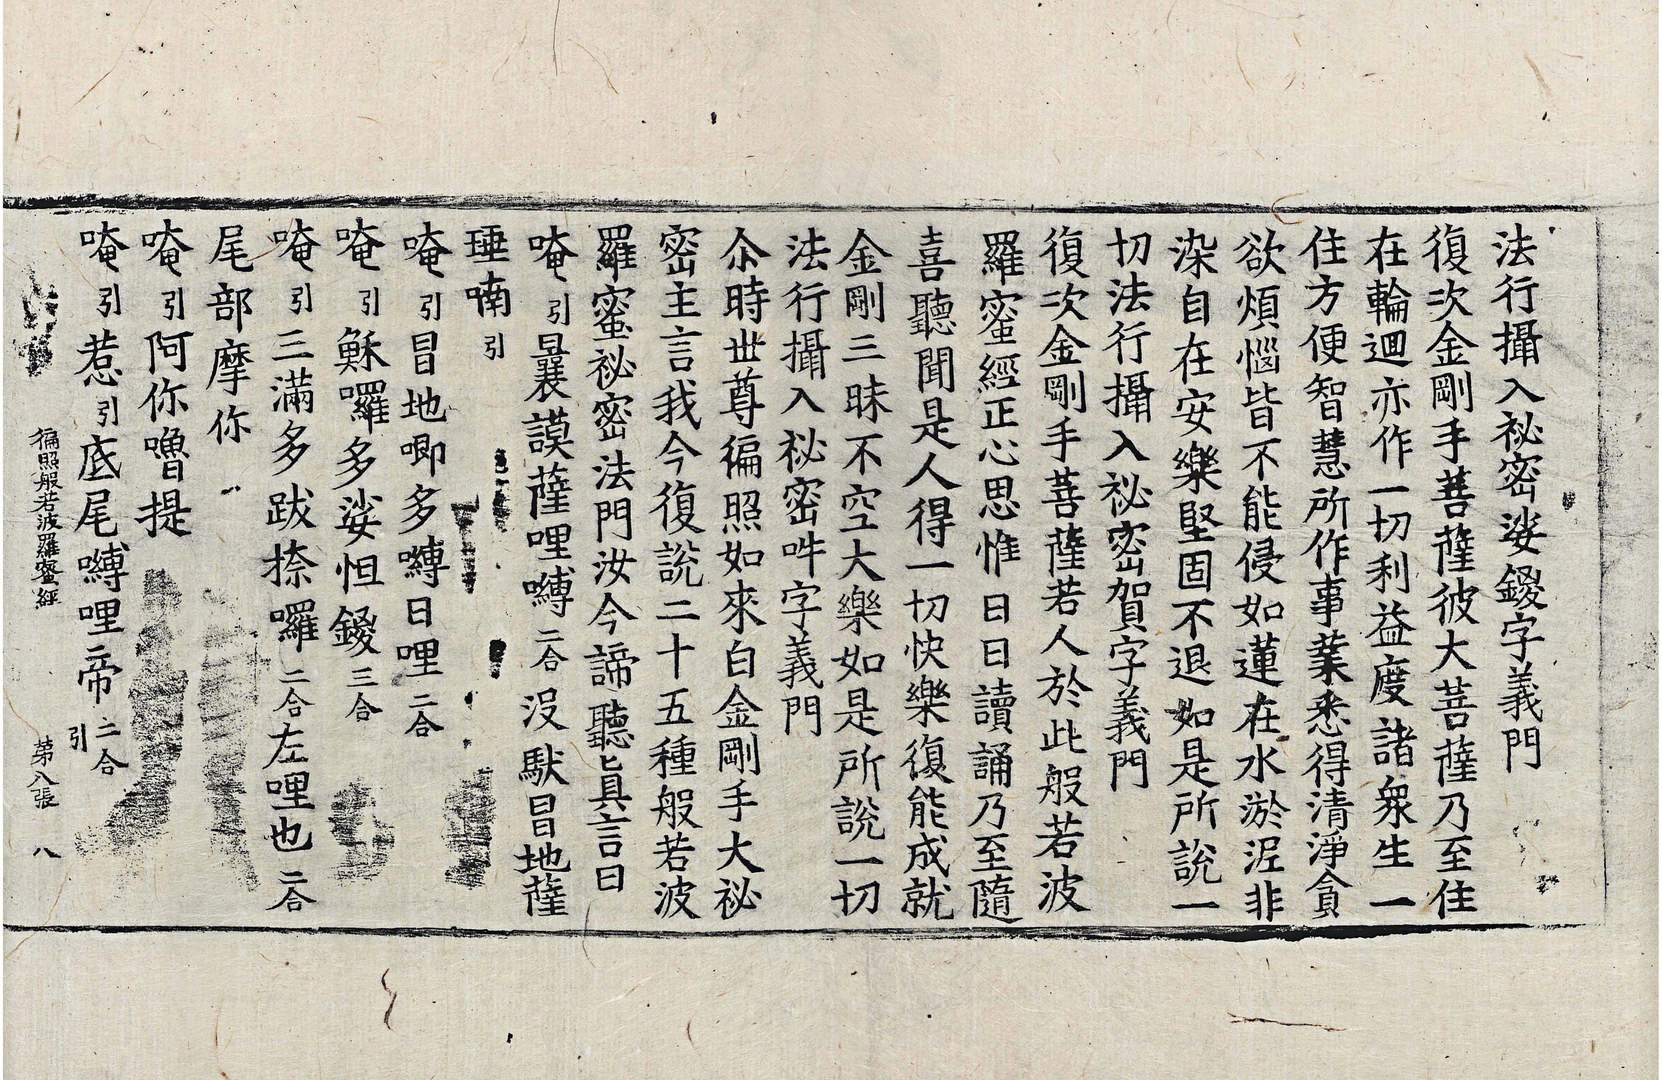 法行攝入祕密娑鑁字義門
復次金剛手菩薩彼大菩薩乃至住
在輪迴亦作一切利益度諸衆生一
住方便智慧所作事業悉得清淨貪
欲煩惱皆不能侵如蓮在水淤泥非
染自在安樂堅固不退如是所說一
切法行攝入祕密賀字義門
復次金剛手菩薩若人於此般若波
羅蜜經正心思惟日日讀誦乃至隨
喜聽聞是人得一切快樂復能成就
金剛三昧不空大樂如是所說一切
法行攝入祕密吽字義門
尒時世尊徧照如來白金剛手大祕
密主言我今復說二十五種般若波
羅蜜祕密法門汝今諦聽眞言曰
唵引曩謨薩哩嚩二合沒馱冒地薩
埵喃引
唵引冒地唧多嚩日哩二合
唵引穌囉多娑怛鑁三合
唵引三滿多跋捺囉二合左哩也二合
尾部摩你
唵引阿你嚕提
唵引惹引底尾嚩哩帝二合引
徧照般若波羅蜜經 第八張 八